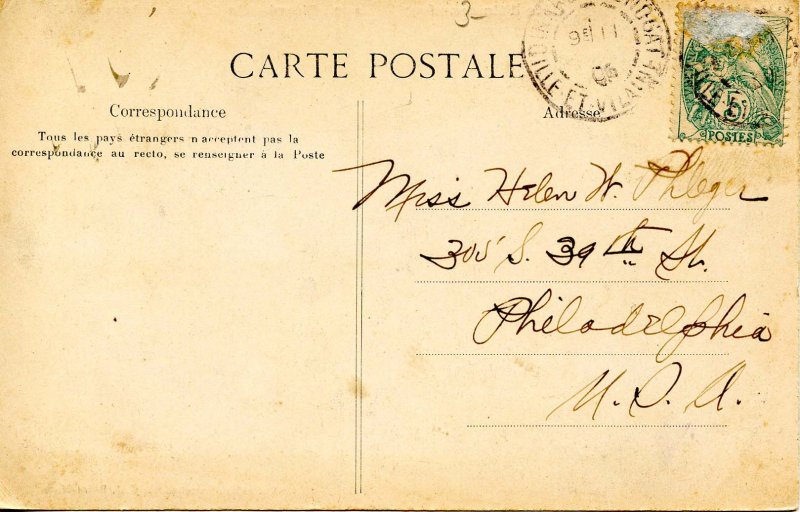 3-
CARTE POSTALE
Correspondance
Tous les pays étrangers n'acceptent pas la
correspondance au recto, se renseigner à la Poste
ILLE-ET-VILAINE
05
5
POSTES
Adresse
Miss Helen W. Phleger
305 S. 39th St.
Philadelphia
U.S.A.